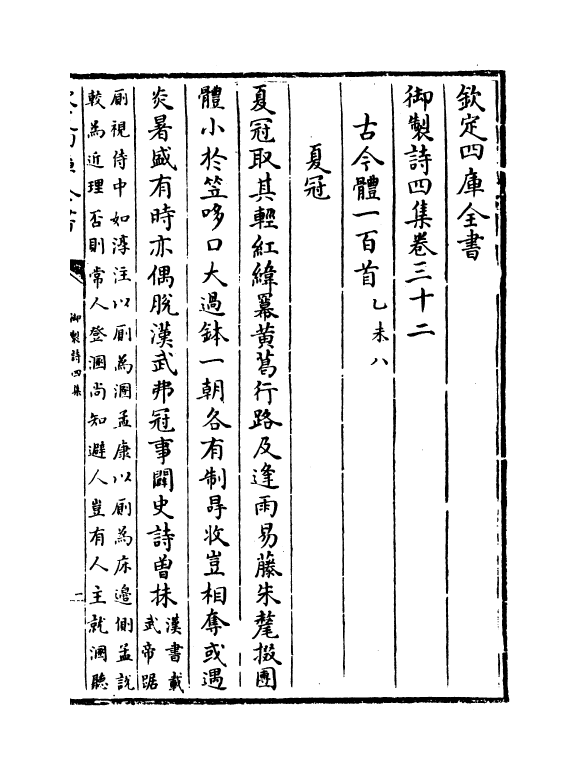 欽定四庫全書
御製詩四集卷三十二
古今體一百首乙未八
夏冠
夏冠取其輕紅緯羃黄葛行路及逢雨易藤朱氂掇團
體小於笠哆口大過鉢一朝各有制冔收豈相奪或遇
炎暑盛有時亦偶脫漢武弗冠事闢史詩曾抹漢書載
武帝踞
厠視侍中如淳注以厠為溷孟康以厠為床邉側孟説
較為近理否則常人登溷尚知避人豈有人主就溷聽
御製詩四集